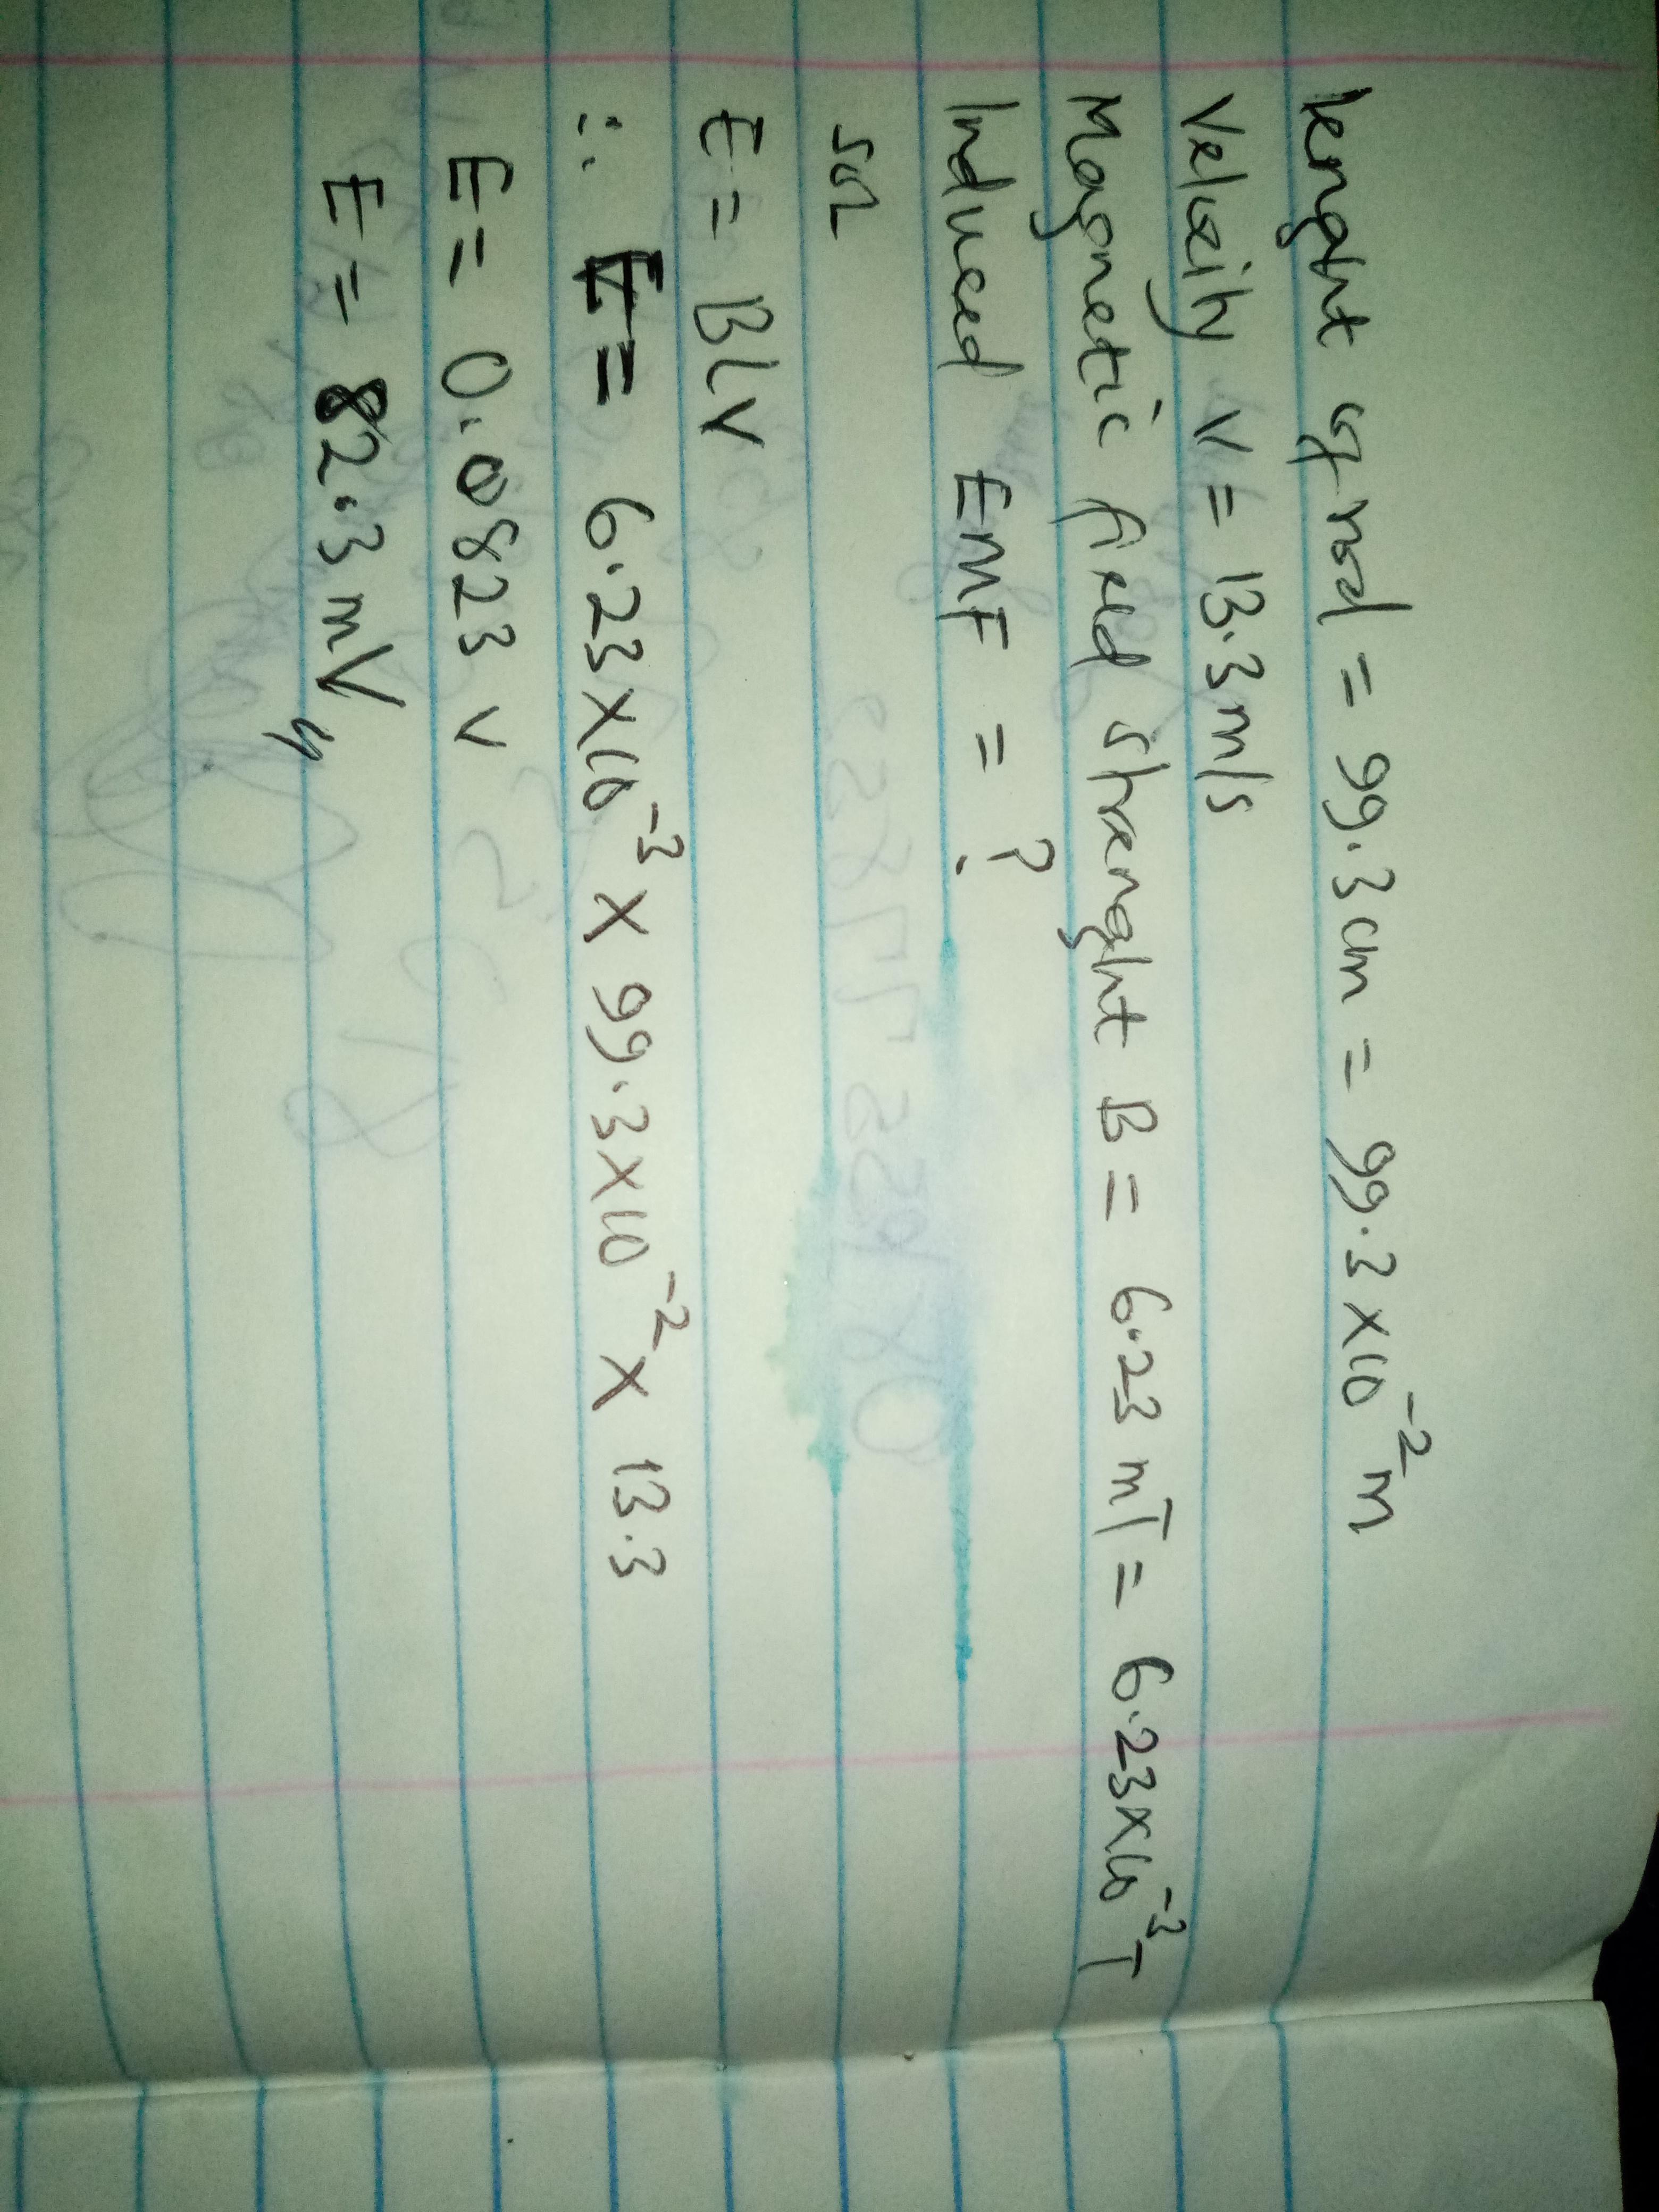 lenght of rod = 99.3cm = 99.3×10⁻²m
Velocity V = 13.3m/s
Magnetic field strenght B = 6.23 mT = 6.23×10⁻³T
Induced EMF = ?
soln
E = BLV
∴ E = 6.23×10⁻³ × 99.3×10⁻² × 13.3
E = 0.0823 V
E = 82.3 mV